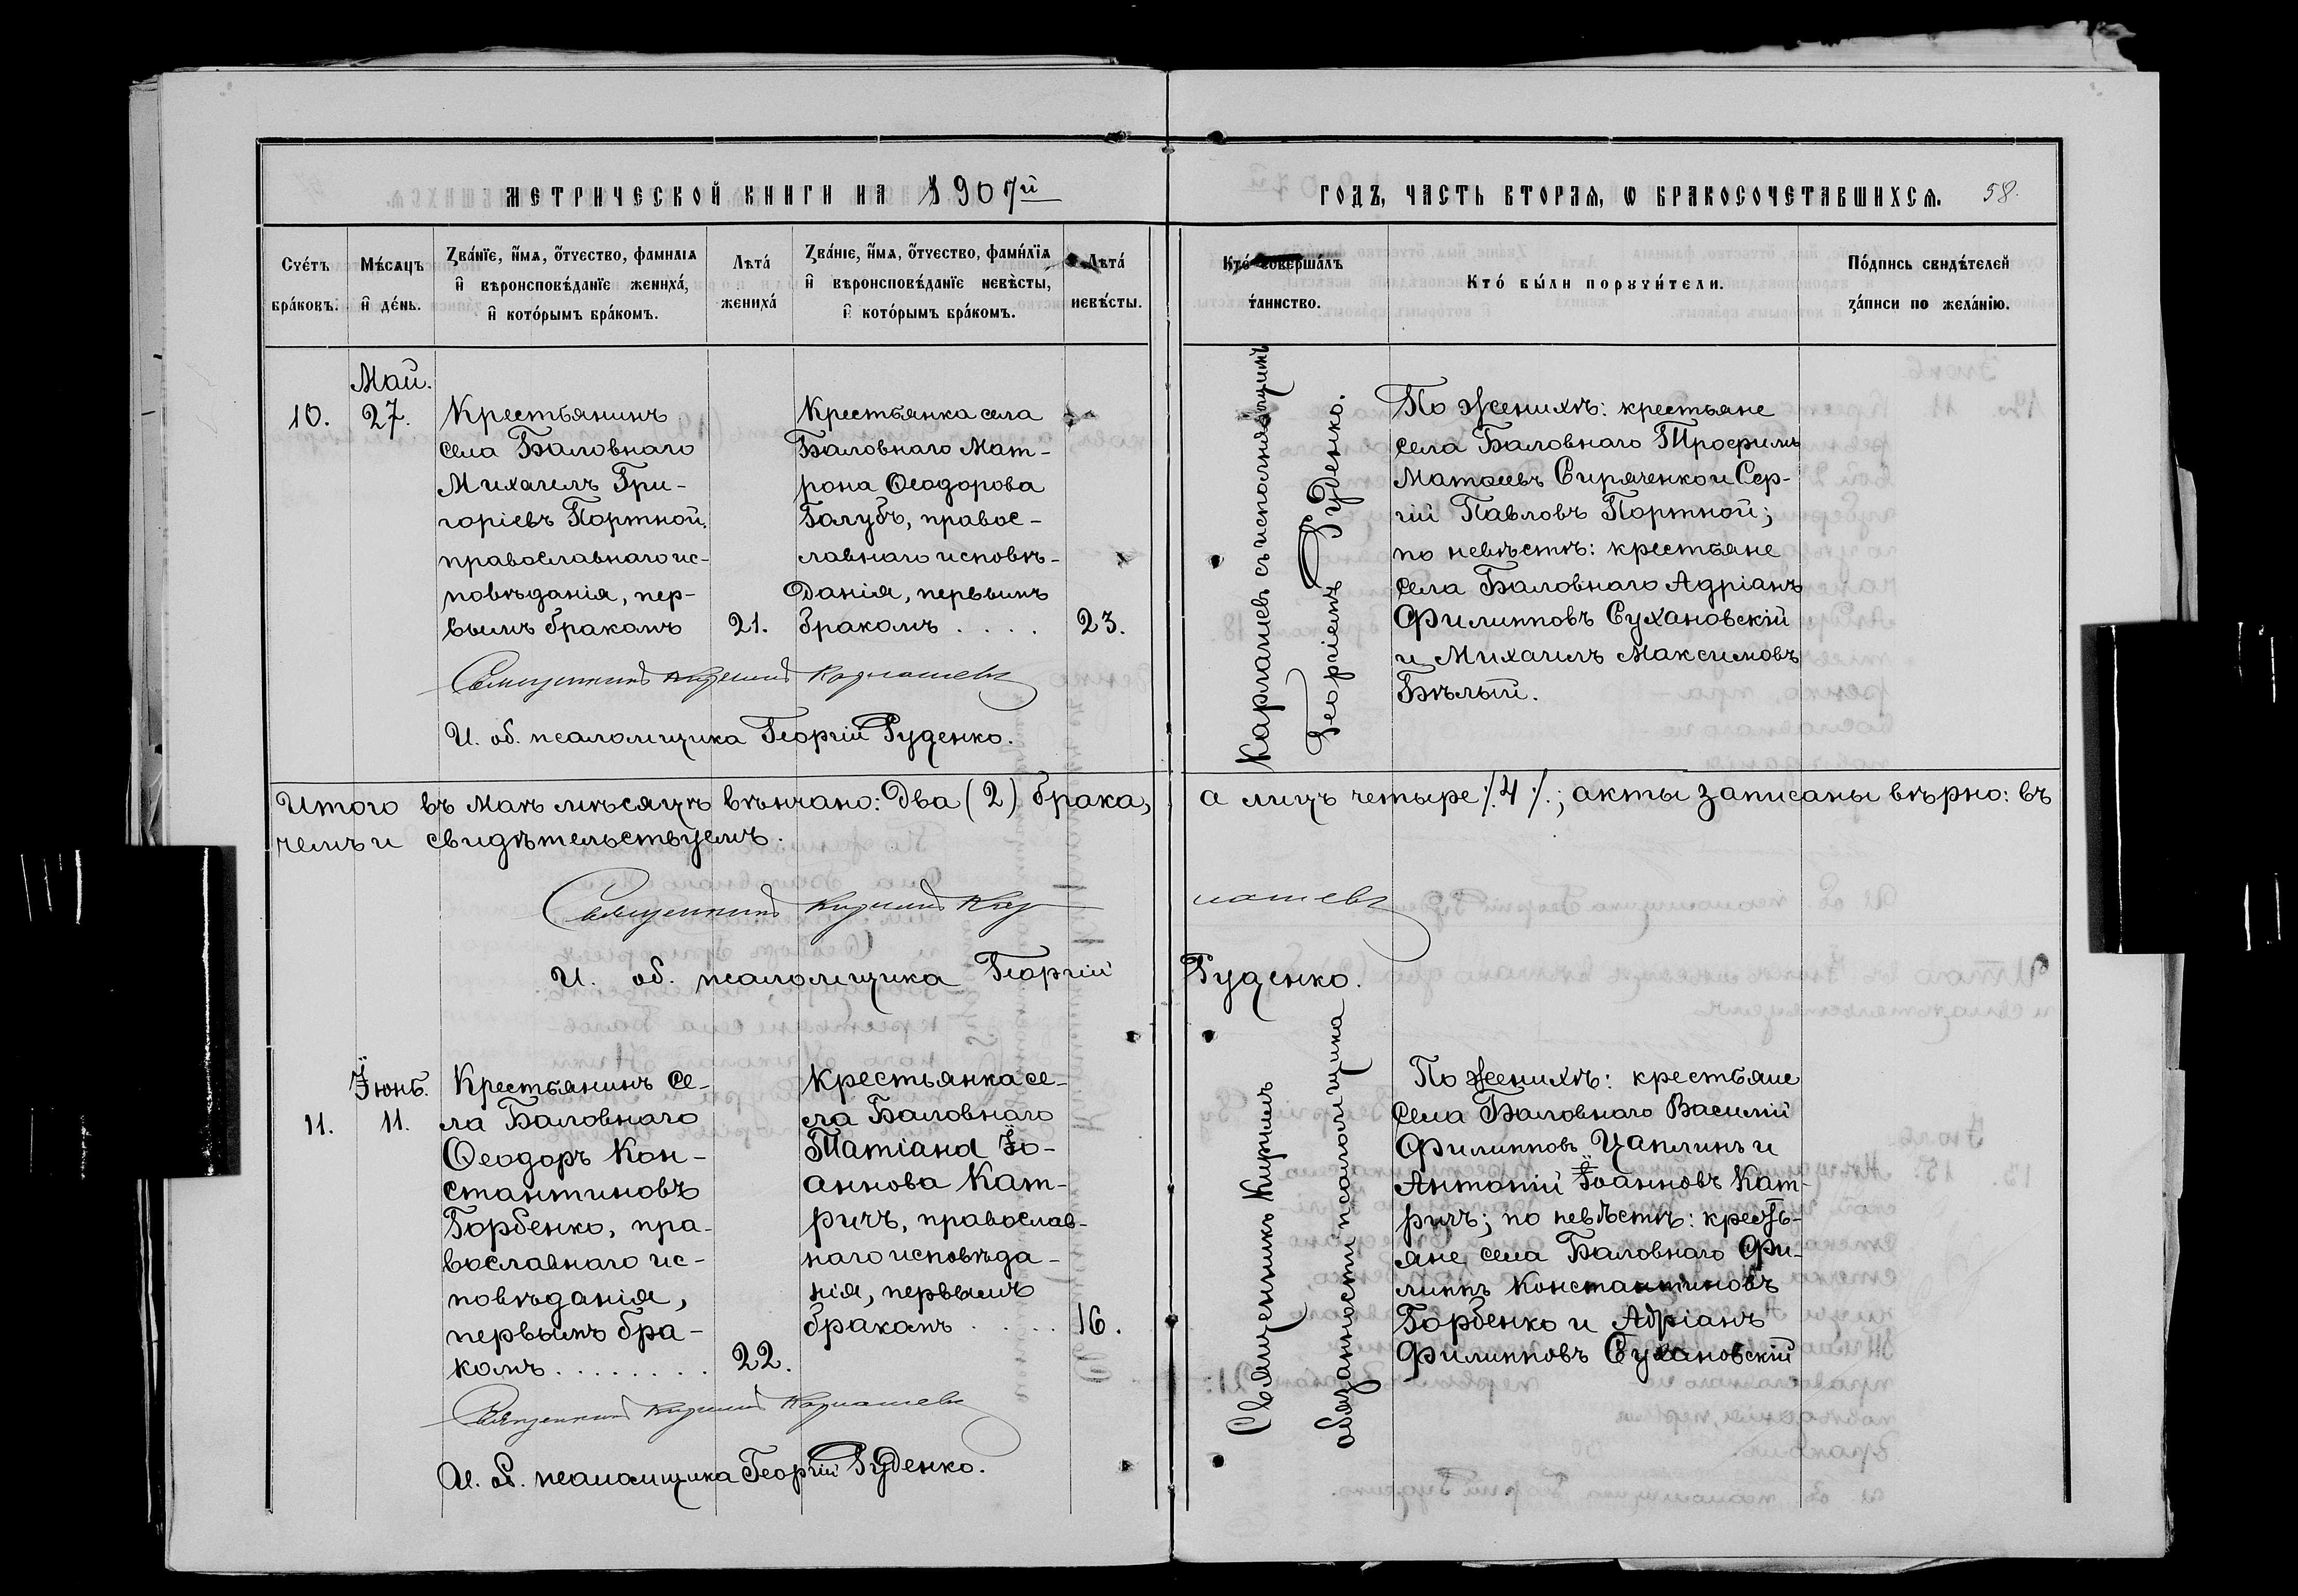 МЕТРИЧЕСКОЙ КНИГИ НА 1907й
ГОДЪ, ЧАСТЬ ВТОРАѦ, Ѡ БРАКОСОЧЕТАВШИХСѦ. 58.
Сче́тъ бра́ковъ.
Мѣ́сѧцъ и҆ де́нь.
Зва́нїе, и҆́мѧ, ѻ҆́тчество, фамилїѧ
и҆ вѣроисповѣ́данїе жениха́,
и҆ кото́рымъ бра́комъ.
Лѣта́
жениха́
Зва́нїе, и҆́мѧ, ѻ҆́тчество, фами́лїѧ
и҆ вѣроисповѣ́данїе невѣ́сты,
и҆ кото́рымъ бра́комъ.
Лѣта́
невѣ́сты.
Кто́ соверша́лъ
та́инство.
Кто́ бы́ли порꙋчи́тели.
По́дпись свидѣ́телей
за́писи по жела́нїю.
Май.
10. 27.
Крестьянинъ
села Баловнаго
Михаилъ Гри-
горіевъ Портной,
православнаго ис-
повѣданія, пер-
вымъ бракомъ
21.
Крестьянка села
Баловнаго Мат-
рона Ѳеодорова
Голубъ, правос-
лавнаго исповѣ-
данія, первымъ
бракомъ . . . .
23.
Карлашевъ съ исполняющимъ
Георгіемъ Руденко.
По женихѣ: крестьяне
села Баловнаго Трофимъ
Матѳеевъ Сиряченко и Сер-
гій Павловъ Портной;
по невѣстѣ: крестьяне
села Баловнаго Адріанъ
Филипповъ Сухановскій
и Михаилъ Максимовъ
Бѣлый.
Священникъ Кириллъ Карлашевъ
И. об. псаломщика Георгій Руденко.
Итого въ маѣ мѣсяцѣ вѣнчано: Два (2) брака, а лицъ четыре ∕.4∕.; акты записаны вѣрно: въ
чемъ и свидѣтельствуемъ.
Священникъ Кириллъ Карлашевъ
И. об. псаломщика Георгій Руденко.
Іюнь.
11. 11.
Крестьянинъ се-
ла Баловнаго
Ѳеодоръ Кон-
стантиновъ
Горбенко, пра-
вославнаго ис-
повѣданія,
первымъ бра-
комъ . . . . . . . .
22.
Крестьянка се-
ла Баловнаго
Татіана Іо-
аннова Кат-
ричъ, православ-
наго исповѣда-
нія, первымъ
бракомъ . . . .
16.
Священникъ Кириллъ
обязанности псаломщика
По женихѣ: крестьяне
села Баловнаго Василій
Филипповъ Цаплинъ и
Антоній Іоанновъ Кат-
ричъ; по невѣстѣ: кресть-
яне села Баловнаго Фи-
липпъ Константиновъ
Горбенко и Адріанъ
Филипповъ Сухановскій
Священникъ Кириллъ Карлашевъ
И. об. псаломщика Георгій Руденко.